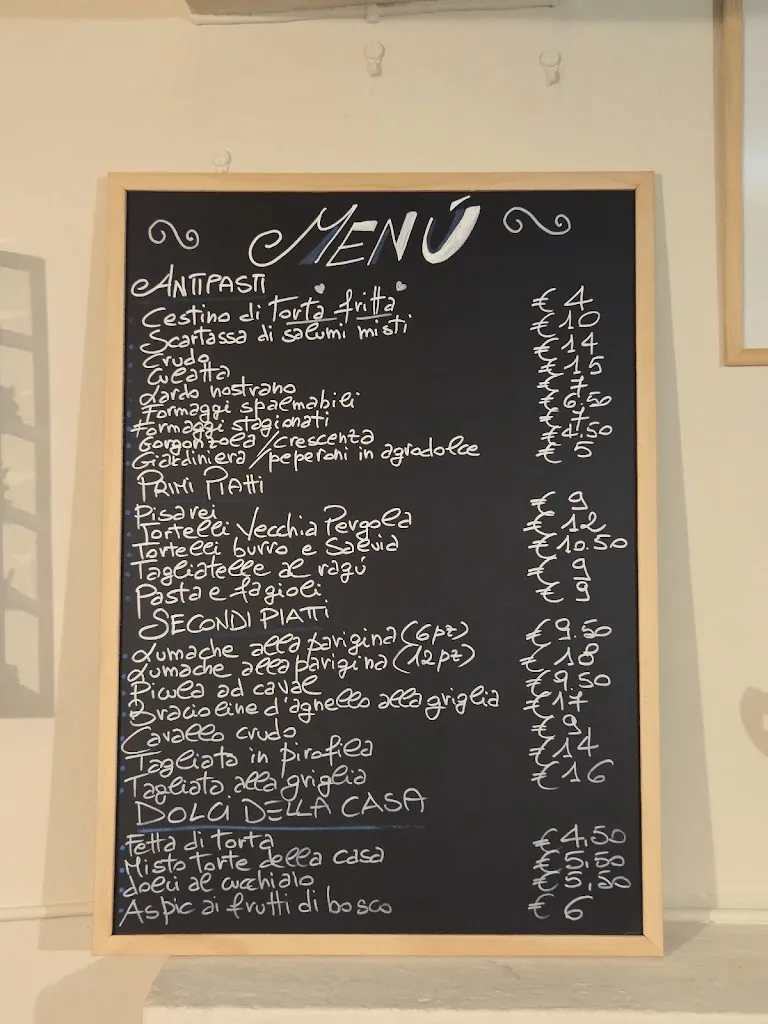 MENÚ
ANTIPASTI
Cestino di Torta fritta € 4
Scartassa di salumi misti € 10
Crudo € 14
Culatta € 15
Lardo nostrano € 7
Formaggi spalmabili € 6.50
Formaggi stagionati € 7
Gorgonzola/crescenza € 4.50
Giardiniera/peperoni in agrodolce € 5
PRIMI PIATTI
Pisarei € 9
Tortelli Vecchia Pergola € 12
Tortelli burro e Salvia € 10.50
Tagliatelle al ragú € 9
Pasta e fagioli € 9
SECONDI PIATTI
Lumache alla parigina (6pz) € 9.50
Lumache alla parigina (12pz) € 18
Picula ad caval € 9.50
Bracioline d'agnello alla griglia € 17
Cavallo crudo € 9
Tagliata in pirofila € 14
Tagliata alla griglia € 16
DOLCI DELLA CASA
Fetta di torta € 4,50
Misto torte della casa € 5,50
dolci al cucchiaio € 5,50
Aspic ai frutti di bosco € 6